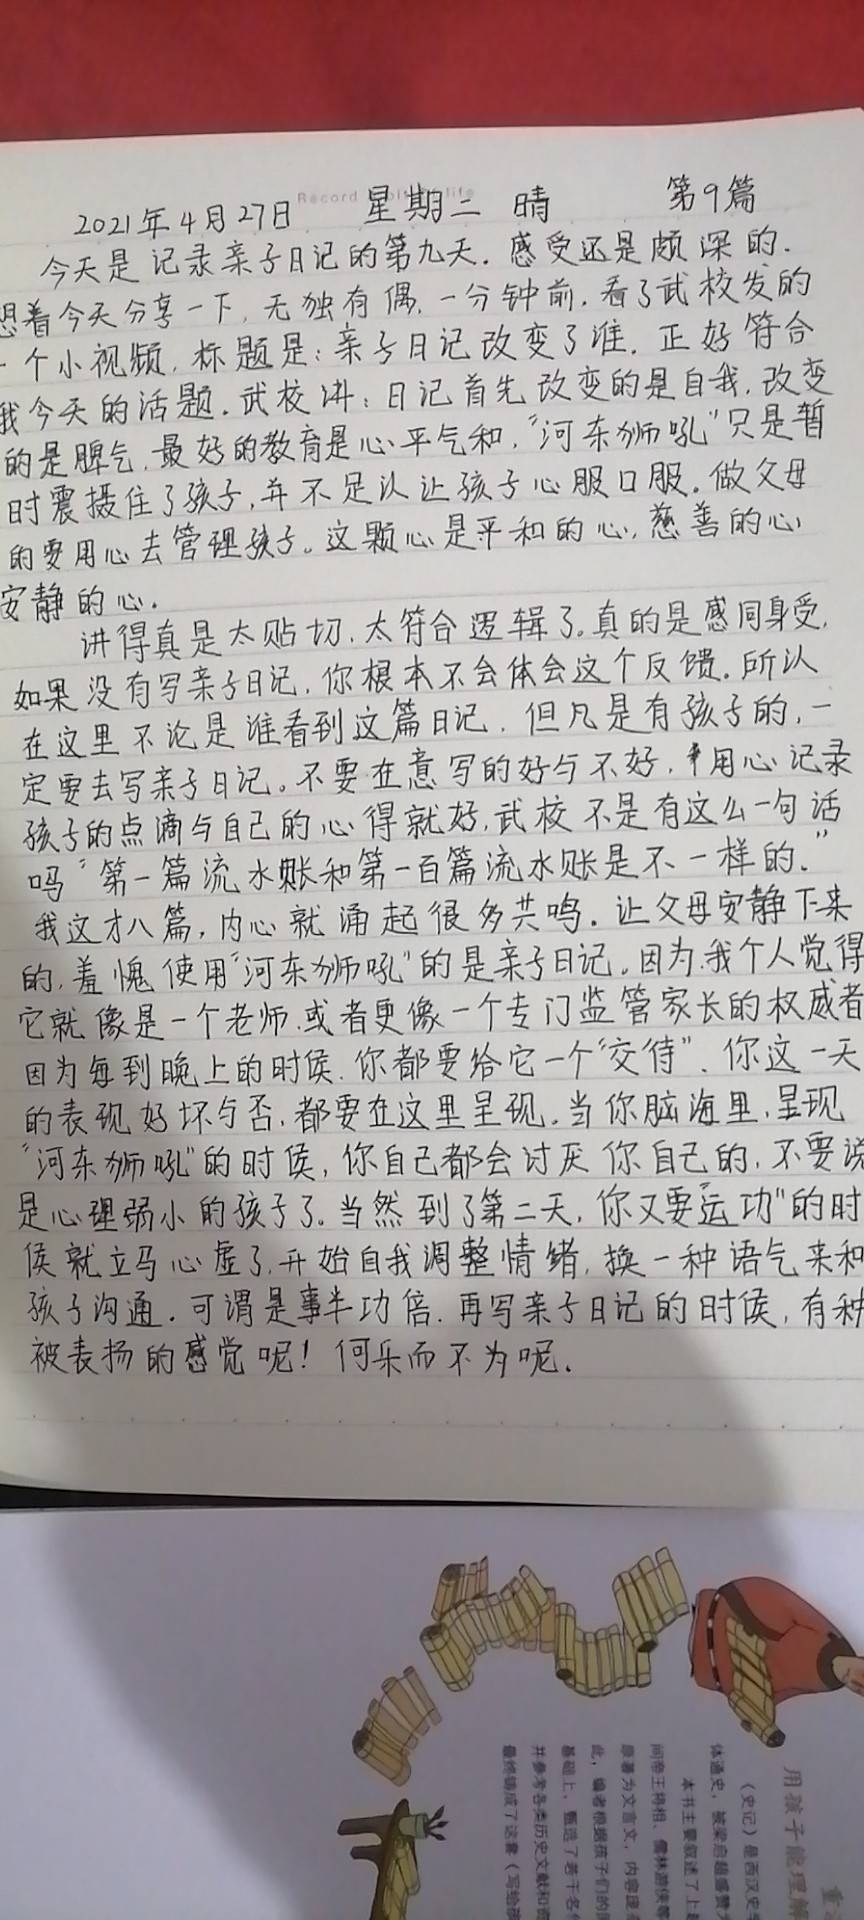 Record
life
2021年4月27日 星期二 晴 第9篇
今天是记录亲子日记的第九天.感受还是颇深的.
想着今天分享一下,无独有偶,一分钟前,看了武校发的
一个小视频,标题是:亲子日记改变了谁.正好符合
我今天的话题.武校讲:日记首先改变的是自我,改变
的是脾气,最好的教育是心平气和,"河东狮吼"只是暂
时震摄住了孩子,并不足认让孩子心服口服。做父母
的要用心去管理孩子。这颗心是平和的心,慈善的心
安静的心.
讲得真是太贴切,太符合逻辑了。真的是感同身受,
如果没有写亲子日记,你根本不会体会这个反馈.所认
在这里不论是谁看到这篇日记,但凡是有孩子的,一
定要去写亲子日记。不要在意写的好与不好,用心记录
孩子的点滴与自己的心得就好,武校不是有这么一句话
吗"第一篇流水账和第一百篇流水账是不一样的."
我这才八篇,内心就涌起很多共鸣.让父母安静下来
的,羞愧使用"河东狮吼"的是亲子日记。因为我个人觉得
它就像是一个老师.或者更像一个专门监管家长的权威者
因为每到晚上的时侯.你都要给它一个"交待".你这一天
的表现好坏与否,都要在这里呈现.当你脑海里,呈现
"河东狮吼"的时侯,你自己都会讨厌你自己的,不要说
是心理弱小的孩子了。当然到了第二天,你又要"运功"的时
侯就立马心虚了,开始自我调整情绪,换一种语气来和
孩子沟通.可谓是事半功倍.再写亲子日记的时侯,有种
被表扬的感觉呢!何乐而不为呢.
用孩子能理解
《史记》是西汉史学
体通史,被梁启超盛赞为
本书主要叙述了上起
间帝王将相、儒林游侠等
原著为文言文,内容
此,编者根据孩子们的
基础上,甄选了若干名
并参考各类历史文献和
最终铸成了这套《写给孩